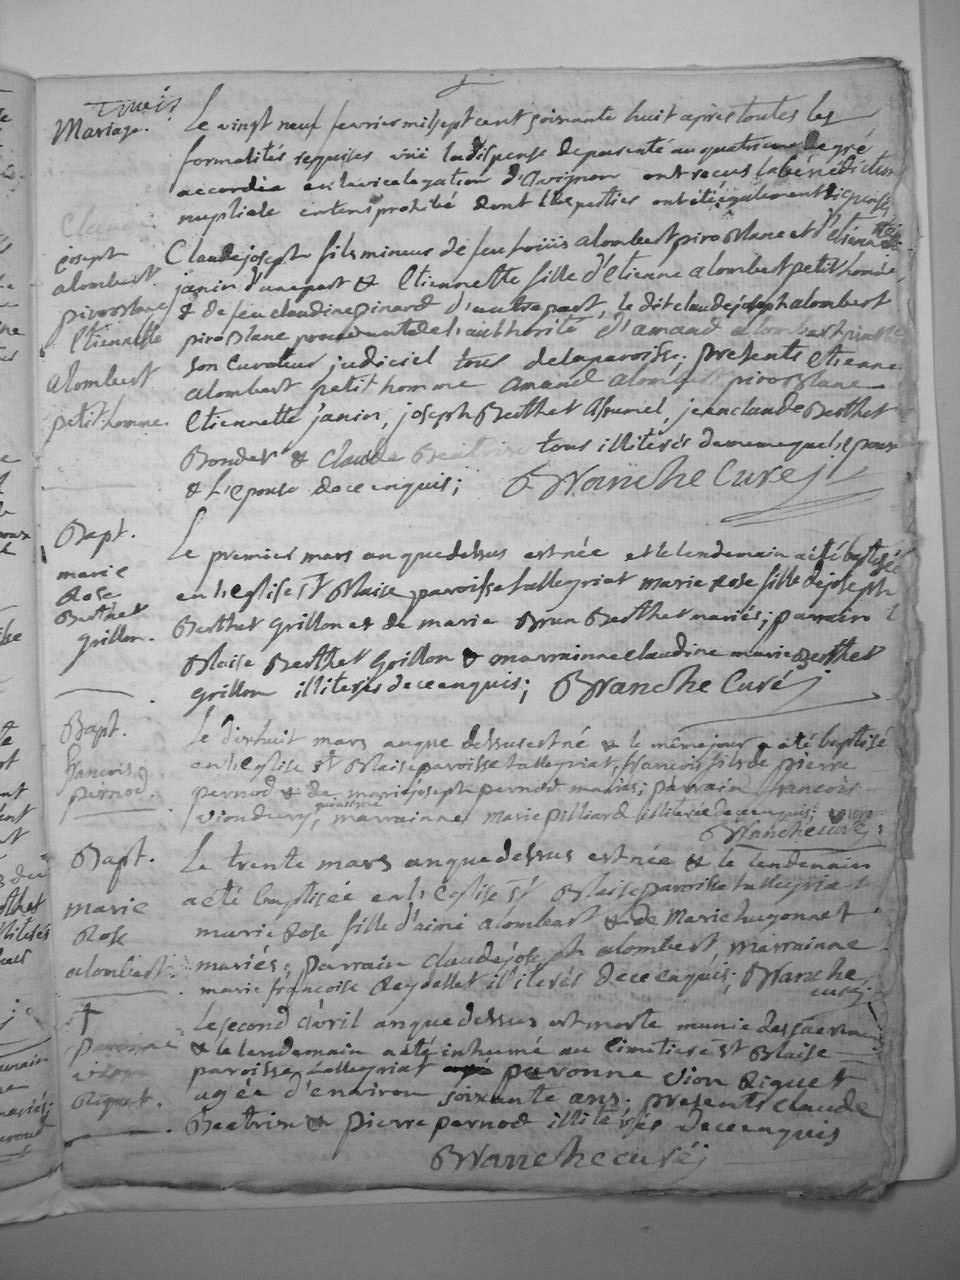 Mariage.
Le vingt neuf fevrier mil sept cent soixante huit apres toutes les
formalités requises vüe la dispense de parenté au quatrieme degré
accordée en la vicelegation d'Avignon ont recus la bénédiction
nuptiale en tems prohibé dont les parties ont été également
Claude
joseph
alombert
piroollane
Etiennette
alombert
petit homme.
Claude joseph fils mineur de feu alombert piroollane et d'etiennette
janin d'une part & Etiennette fille d'Etienne alombert petit homme
& de feu claudine pinard d'autre part, le dit claude joseph alombert
piroollane procedant de l'authorité d'amand alombert
son Curateur judiciel tous de la paroisse; presents etienne
alombert petit homme amand alombert piroollane
Etiennette janin, joseph Berthet jean claude Berthet
Bondet & Claude Beatrix tous illiterés de meme que l'epoux
& l'epouse de ce enquis; Blanche Curé
Bapt.
marie
Rose
Berthet
grillon.
Le premier mars an que dessus est née et le lendemain a été baptisée
en l'eglise St Blaise paroisse tallegriat marie Rose fille de joseph
Berthet grillon et de marie Brun Berthet mariés; parrain
Blaise Berthet Grillon & marrainne claudine marie Berthet
grillon illiterés de ce enquis; Blanche Curé
Bapt.
francois
pernod.
Le dix huit mars an que dessus est né & le même jour a été baptisé
en l'eglise St Blaise paroisse tallegriat, francois fils de pierre
pernod & de marie joseph pernod mariés; parrain francois
marrainne marie pilliard illiterée de ce enquis;
Blanche curé
Bapt.
marie
Rose
alombert.
Le trente mars an que dessus est née & le lendemain
a été baptisée en l'eglise St Blaise paroisse tallegriat
marie Rose fille d'aimé alombert & de Marie hugonnet
mariés; parrain claude joseph alombert marrainne
marie francoise Reydellet illiterés de ce enquis; Blanche
curé
†
peronne
vion
Riquet.
Le second avril an que dessus est morte munie des sacremens
& le lendemain a été inhumé au cimitiere St Blaise
paroisse tallegriat peronne vion Riquet
agée d'environ soixante ans. presents claude
Beatrix & pierre pernod illiterés de ce enquis
Blanche curé